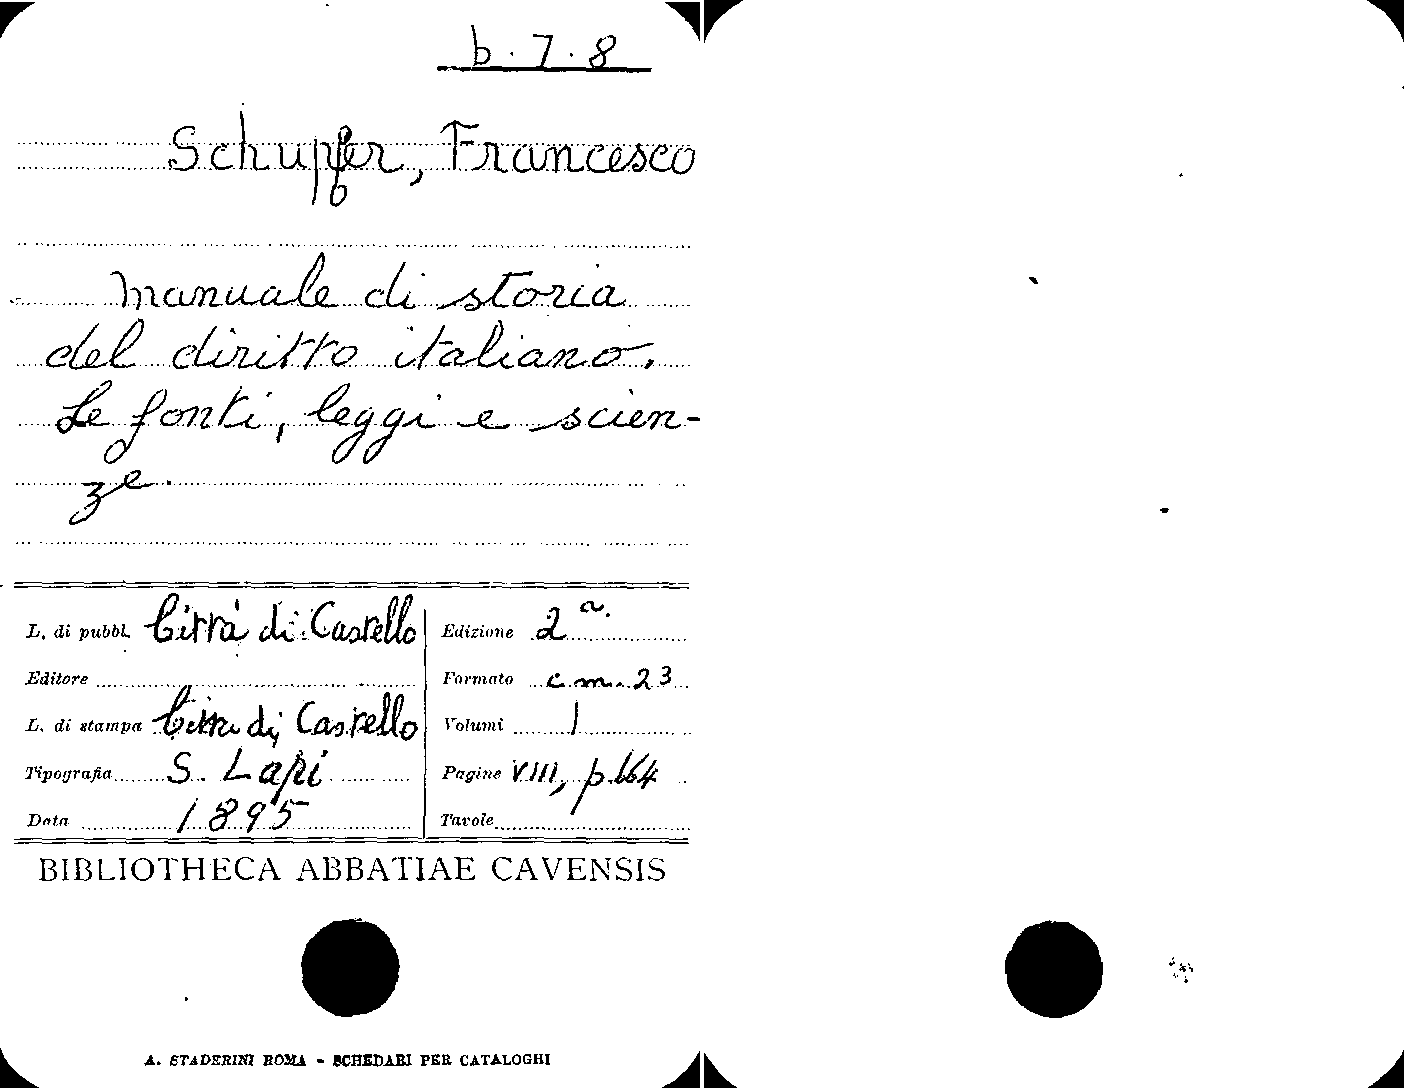 b. 7. 8
Schupfer, Francesco
Manuale di storia
del diritto italiano.
Le fonti, leggi e scien-
ze.
L. di pubbl. Città di Castello
Editore
L. di stampa Città di Castello
Tipografia S. Lapi
Data 1895
Edizione 2a.
Formato c.m. 23
Volumi 1
Pagine VIII, p. 164
Tavole
BIBLIOTHECA ABBATIAE CAVENSIS
A. STADERINI ROMA - SCHEDARI PER CATALOGHI